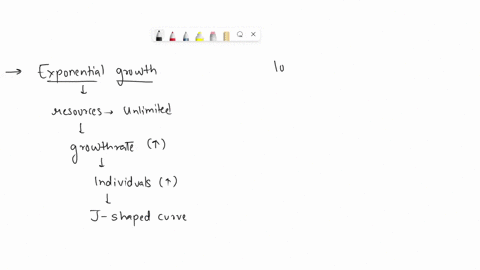 → Exponential growth
↓
resources → Unlimited
↓
growthrate (↑)
↓
Individuals (↑)
↓
J-shaped curve
lo